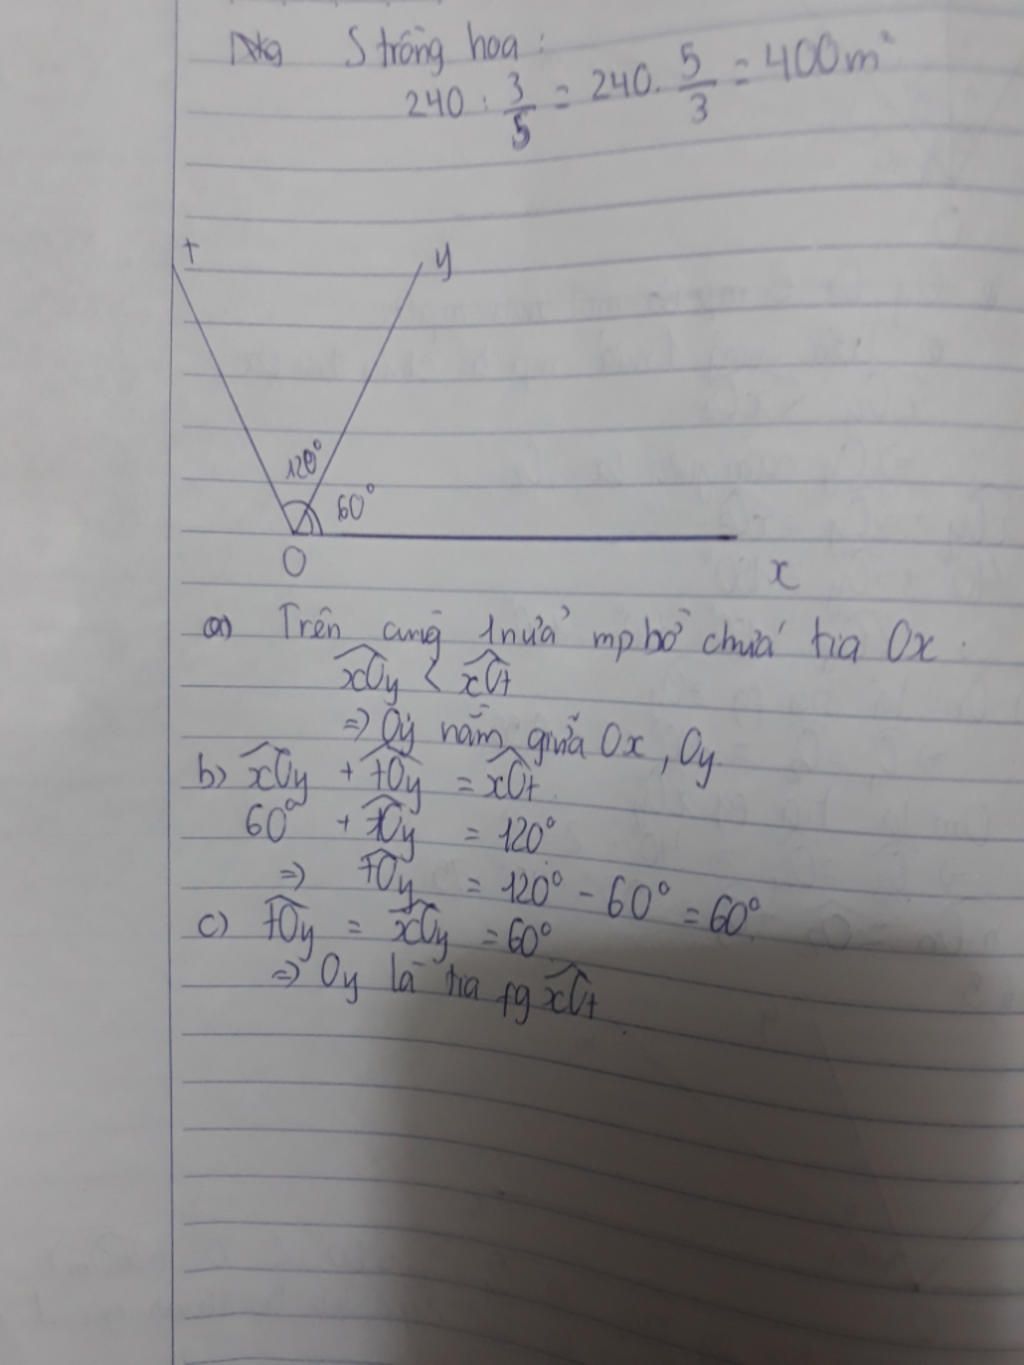 S trồng hoa :
240 : 3/5 = 240 . 5/3 = 400m²
t
y
120°
60°
O
x
a) Trên cùng 1 nửa mp bờ chứa tia Ox.
xOy < xOt
=> Oy nằm giữa Ox, Oy
b) xOy + tOy = xOt
60° + tOy = 120°
=> tOy = 120° - 60° = 60°
c) tOy = xOy = 60°
=> Oy là tia pg xOt